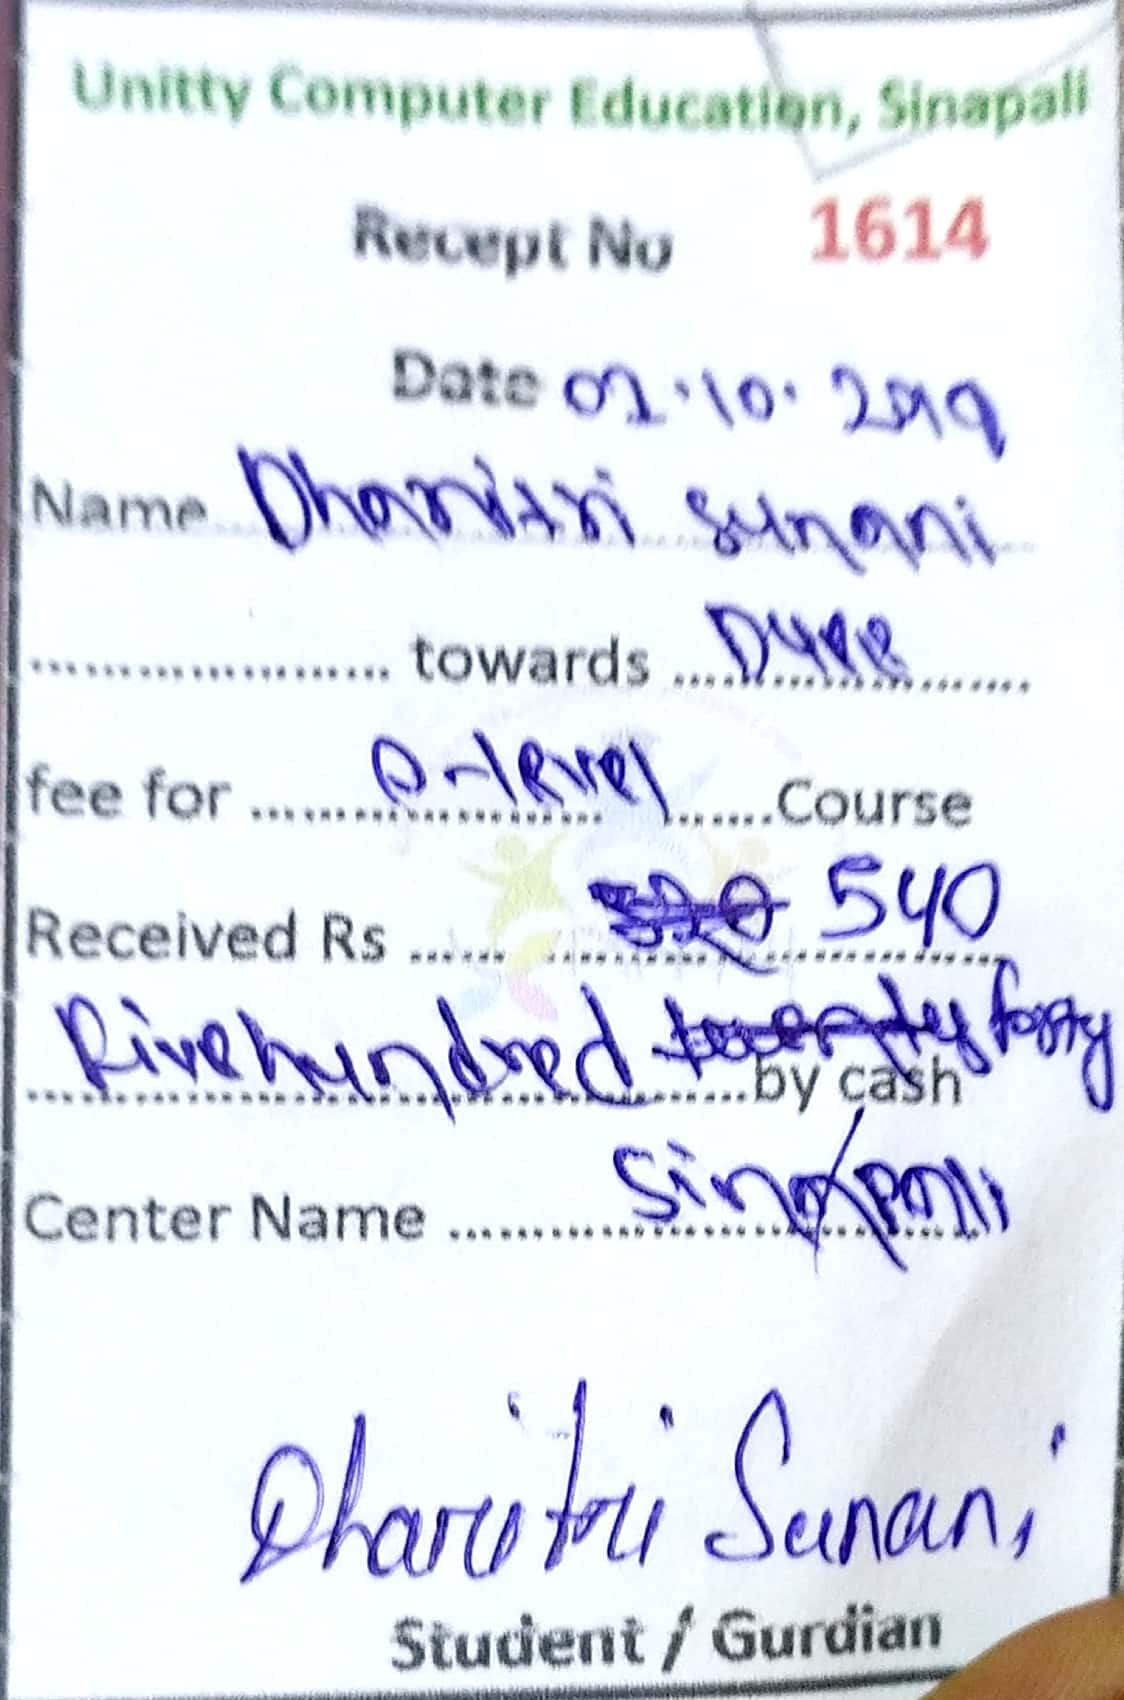 Unitty Computer Education, Sinapali
Recept No 1614
Date 01.10.2019
Name Dharitri Sunani
.................... towards ....................
fee for ........ O-level ........Course
Received Rs ...... 540
Five hundred forty
.....by cash
Center Name ........ Sinapali
Dharitri Sunani
Student / Gurdian